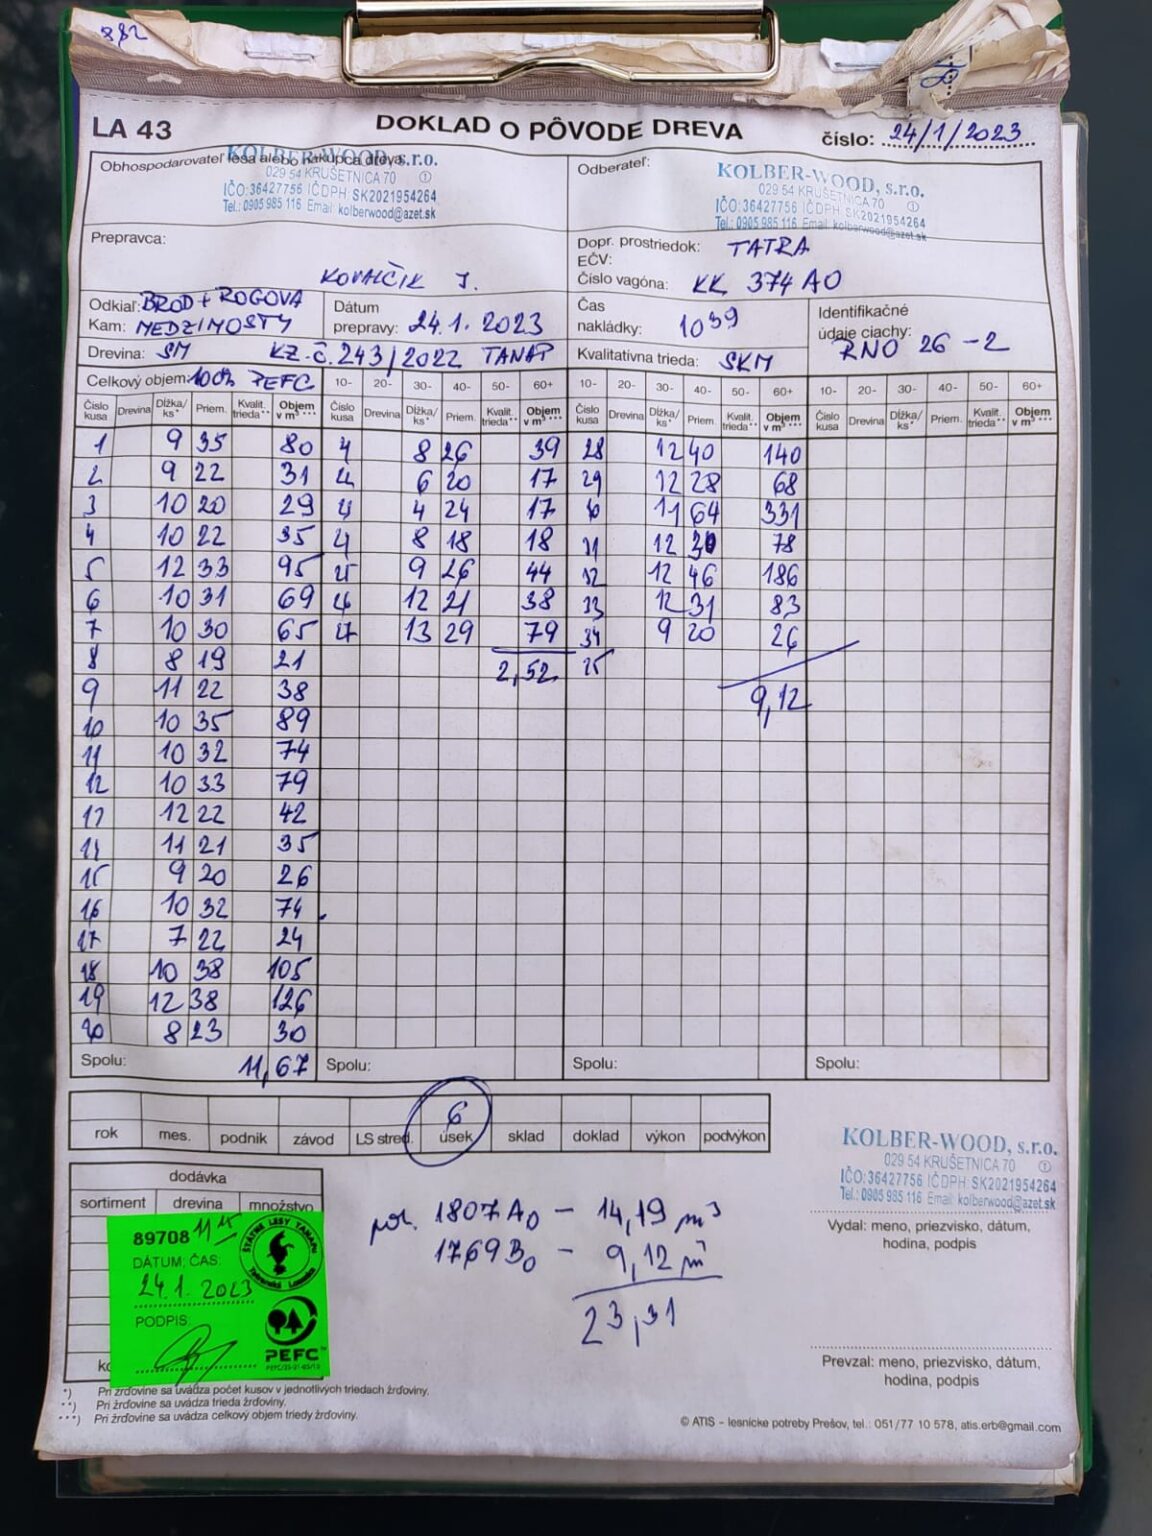 882
LA 43
DOKLAD O PÔVODE DREVA
číslo: 24/1/2023
Obhospodarovateľ lesa alebo nákupca dreva:
KOLBER-WOOD, s.r.o.
029 54 KRUŠETNICA 70 ①
IČO:36427756 IČDPH: SK2021954264
Tel.: 0905 985 116 Email: kolberwood@azet.sk
Odberateľ:
KOLBER-WOOD, s.r.o.
029 54 KRUŠETNICA 70 ①
IČO:36427756 IČDPH: SK2021954264
Tel.: 0905 985 116 Email: kolberwood@azet.sk
Prepravca:
KOVALČIK J.
Dopr. prostriedok: TATRA
EČV:
Číslo vagóna: KK 374 AO
Odkiaľ: BROD + ROGOVA
Kam: MEDZIMOSTY
Dátum
prepravy: 24.1. 2023
Čas
nakládky: 10 39
Identifikačné
údaje ciachy:
RNO 26 - 2
Drevina: SM KZ.Č. 243/2022 TANAP
Kvalitatívna trieda: SKM
Celkový objem: 100% PEFC 10- 20- 30- 40- 50- 60+ 10- 20- 30- 40- 50- 60+ 10- 20- 30- 40- 50- 60+
Číslo kusa Drevina Dĺžka/ ks* Priem. Kvalit. trieda** Objem v m³ *** Číslo kusa Drevina Dĺžka/ ks* Priem. Kvalit. trieda** Objem v m³ *** Číslo kusa Drevina Dĺžka/ ks* Priem. Kvalit. trieda** Objem v m³ *** Číslo kusa Drevina Dĺžka/ ks* Priem. Kvalit. trieda** Objem v m³ ***
1 9 35 80 8 26 39 28 12 40 140
2 9 22 31 6 20 17 29 12 28 68
3 10 20 29 4 24 17 11 64 331
4 10 22 35 8 18 18 31 12 30 78
5 12 33 95 25 9 26 44 32 12 46 186
6 10 31 69 12 21 38 33 12 31 83
7 10 30 65 27 13 29 79 34 9 20 26
8 8 19 21 2,52
9 11 22 38 9,12
10 10 35 89
11 10 32 74
12 10 33 79
13 12 22 42
14 11 21 35
15 9 20 26
16 10 32 74
17 7 22 24
18 10 38 105
19 12 38 126
20 8 23 30
Spolu: 11,67 Spolu: Spolu: Spolu:
6
rok mes. podnik závod LS stred. úsek sklad doklad výkon podvýkon
dodávka
sortiment drevina množstvo
89708 11 15
DÁTUM, ČAS:
24.1. 2023
PODPIS:
ŠTÁTNE LESY TANAPU
Tatranská Lomnica
PEFC
por. 1807 A0 - 14,19 m³
1769 B0 - 9,12 m³
23,31
KOLBER-WOOD, s.r.o.
029 54 KRUŠETNICA 70 ①
IČO:36427756 IČDPH: SK2021954264
Tel.: 0905 985 116 Email: kolberwood@azet.sk
Vydal: meno, priezvisko, dátum,
hodina, podpis
Prevzal: meno, priezvisko, dátum,
hodina, podpis
*) Pri žrďovine sa uvádza počet kusov v jednotlivých triedach žrďoviny.
**) Pri žrďovine sa uvádza trieda žrďoviny.
***) Pri žrďovine sa uvádza celkový objem triedy žrďoviny.
© ATIS – lesnícke potreby Prešov, tel.: 051/77 10 578, atis.erb@gmail.com